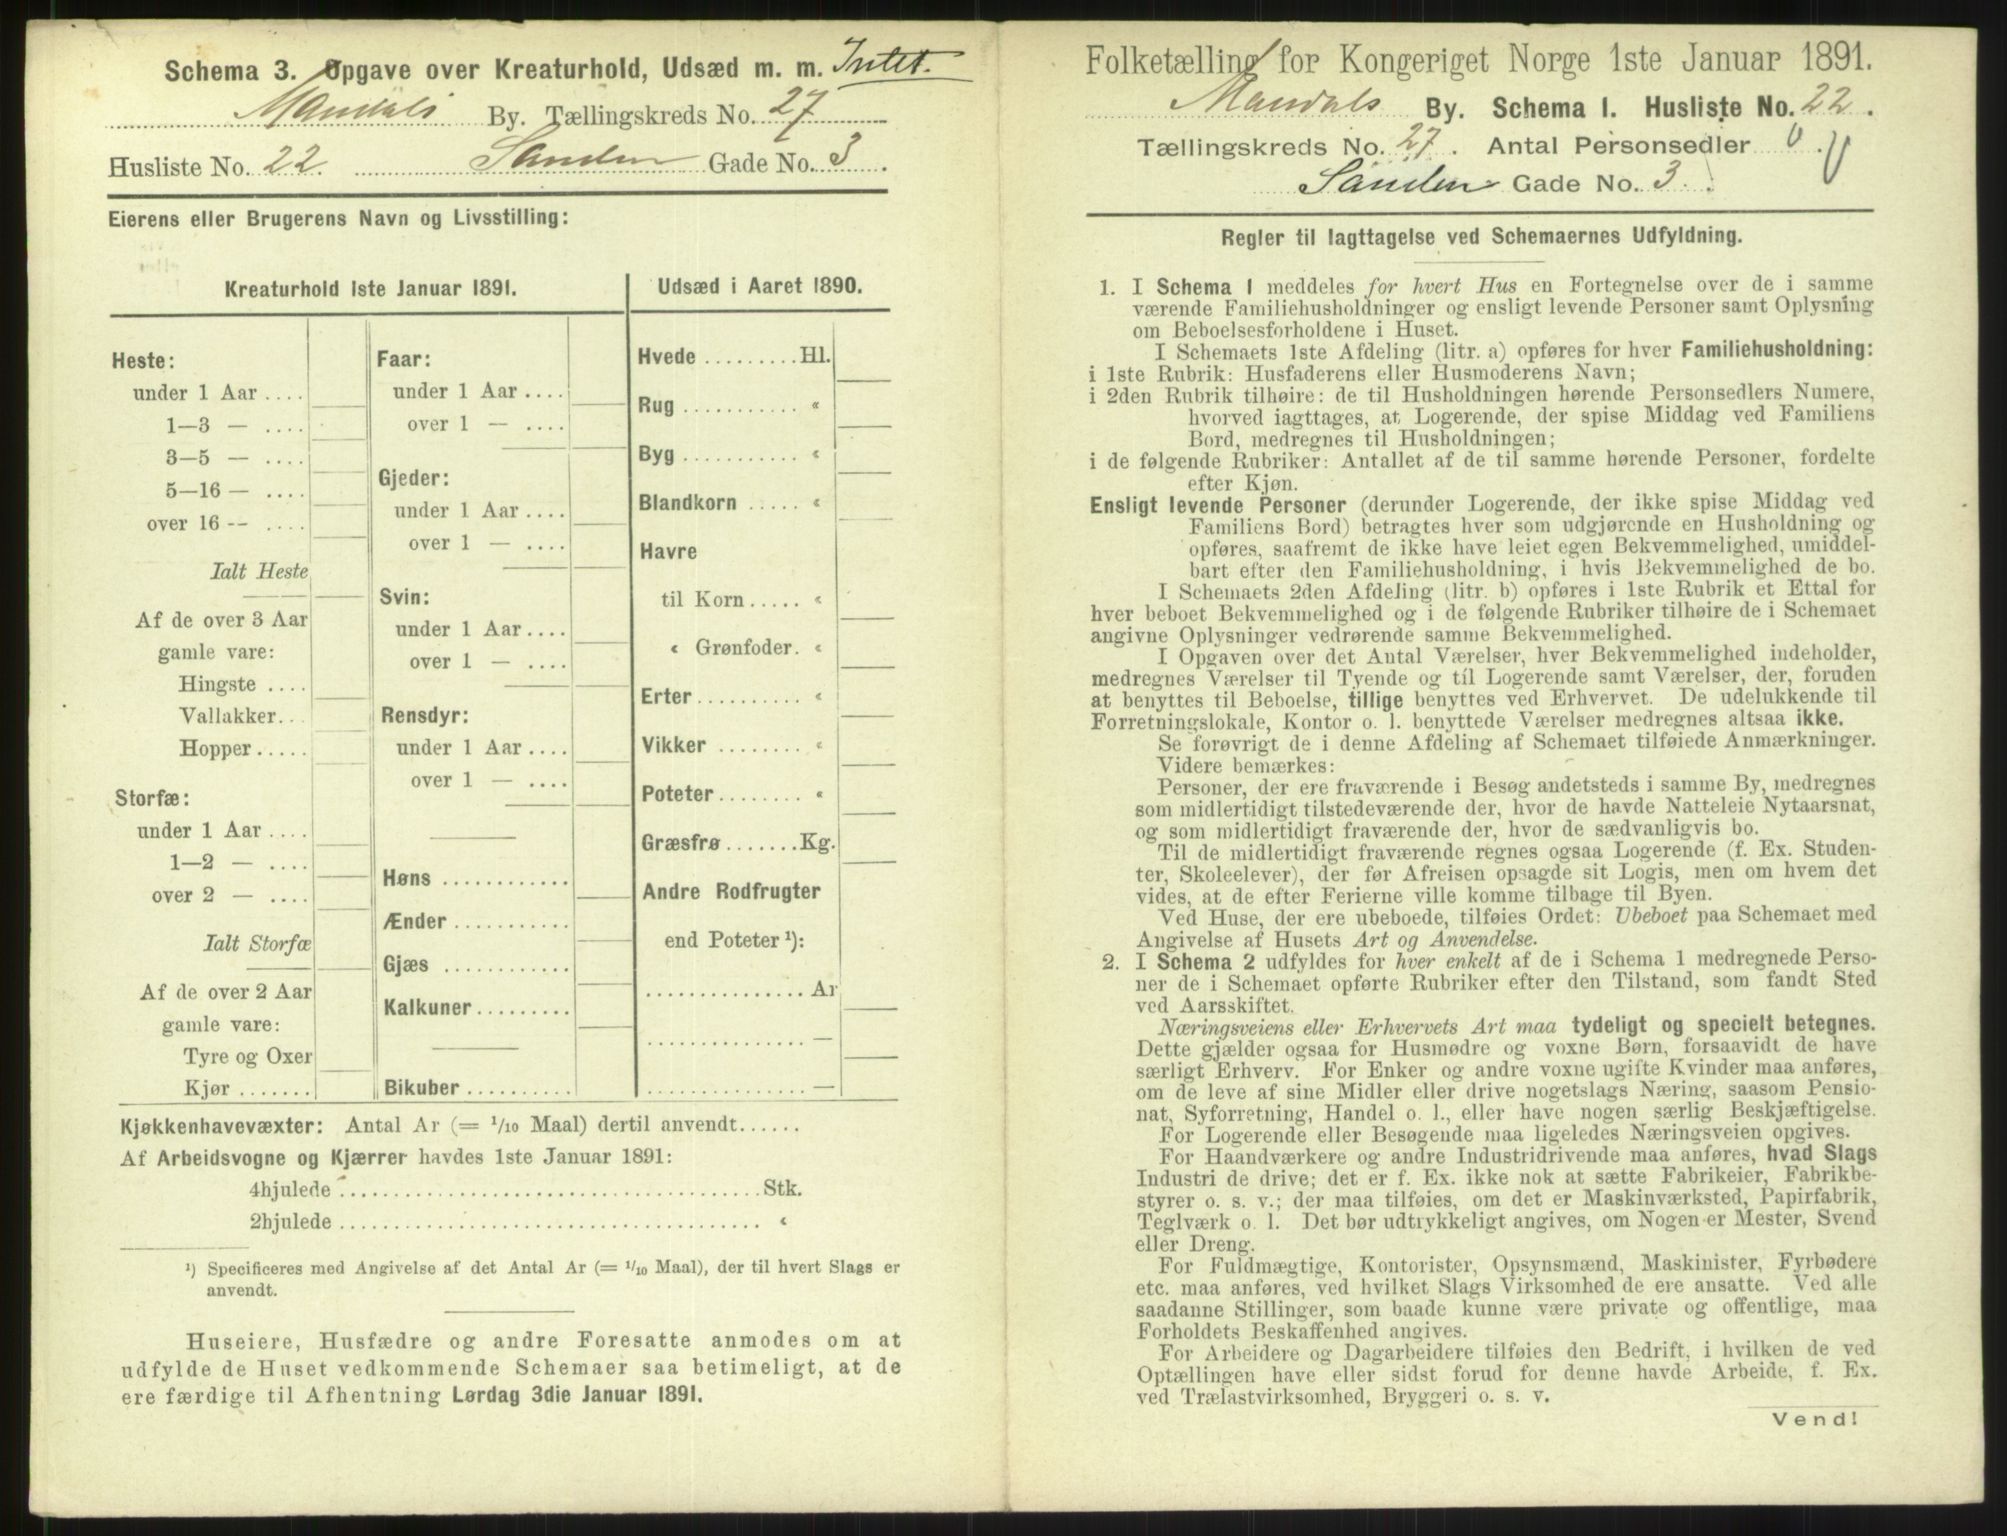 Schema 3. Opgave over Kreaturhold, Udsæd m. m. Intet.
Mandals By. Tællingskreds No. 27
Husliste No. 22. Sanden Gade No. 3.
Eierens eller Brugerens Navn og Livsstilling:
Kreaturhold 1ste Januar 1891.
Heste:
under 1 Aar ....
1—3 — ....
3—5 — ....
5—16 — ....
over 16 -- ....
Ialt Heste
Af de over 3 Aar
gamle vare:
Hingste ....
Vallakker...
Hopper .....
Storfæ:
under 1 Aar ....
1—2 — ....
over 2 — ....
Ialt Storfæ
Af de over 2 Aar
gamle vare:
Tyre og Oxer
Kjør .......
Faar:
under 1 Aar ....
over 1 — ....
Gjeder:
under 1 Aar ....
over 1 — ....
Svin:
under 1 Aar ....
over 1 — ....
Rensdyr:
under 1 Aar ....
over 1 — ....
Høns ............
Ænder ...........
Gjæs ............
Kalkuner.........
Bikuber ..........
Udsæd i Aaret 1890.
Hvede .........Hl.
Rug ........... «
Byg ........... «
Blandkorn ..... «
Havre
til Korn ..... «
« Grønfoder. «
Erter .......... «
Vikker ........ «
Poteter........ «
Græsfrø .......Kg.
Andre Rodfrugter
end Poteter ¹):
............... Ar
............... —
............... —
Kjøkkenhavevæxter: Antal Ar (= 1/10 Maal) dertil anvendt......
Af Arbeidsvogne og Kjærrer havdes 1ste Januar 1891:
4hjulede ........................................Stk.
2hjulede ........................................ «
¹) Specificeres med Angivelse af det Antal Ar (= 1/10 Maal), der til hvert Slags er
anvendt.
Huseiere, Husfædre og andre Foresatte anmodes om at
udfylde de Huset vedkommende Schemaer saa betimeligt, at de
ere færdige til Afhentning Lørdag 3die Januar 1891.
Folketælling for Kongeriget Norge 1ste Januar 1891.
Mandals By. Schema I. Husliste No. 22.
Tællingskreds No. 27. Antal Personsedler 0.
Sanden Gade No. 3.
Regler til Iagttagelse ved Schemaernes Udfyldning.
1. I Schema 1 meddeles for hvert Hus en Fortegnelse over de i samme
værende Familiehusholdninger og ensligt levende Personer samt Oplysning
om Beboelsesforholdene i Huset.
I Schemaets 1ste Afdeling (litr. a) opføres for hver Familiehusholdning:
i 1ste Rubrik: Husfaderens eller Husmoderens Navn;
i 2den Rubrik tilhøire: de til Husholdningen hørende Personsedlers Numere,
hvorved iagttages, at Logerende, der spise Middag ved Familiens
Bord, medregnes til Husholdningen;
i de følgende Rubriker: Antallet af de til samme hørende Personer, fordelte
efter Kjøn.
Ensligt levende Personer (derunder Logerende, der ikke spise Middag ved
Familiens Bord) betragtes hver som udgjørende en Husholdning og
opføres, saafremt de ikke have leiet egen Bekvemmelighed, umiddel-
bart efter den Familiehusholdning, i hvis Bekvemmelighed de bo.
I Schemaets 2den Afdeling (litr. b) opføres i 1ste Rubrik et Ettal for
hver beboet Bekvemmelighed og i de følgende Rubriker tilhøire de i Schemaet
angivne Oplysninger vedrørende samme Bekvemmelighed.
I Opgaven over det Antal Værelser, hver Bekvemmelighed indeholder,
medregnes Værelser til Tyende og til Logerende samt Værelser, der, foruden
at benyttes til Beboelse, tillige benyttes ved Erhvervet. De udelukkende til
Forretningslokale, Kontor o. l. benyttede Værelser medregnes altsaa ikke.
Se forøvrigt de i denne Afdeling af Schemaet tilføiede Anmærkninger.
Videre bemærkes:
Personer, der ere fraværende i Besøg andetsteds i samme By, medregnes
som midlertidigt tilstedeværende der, hvor de havde Natteleie Nytaarsnat,
og som midlertidigt fraværende der, hvor de sædvanligvis bo.
Til de midlertidigt fraværende regnes ogsaa Logerende (f. Ex. Studen-
ter, Skoleelever), der før Afreisen opsagde sit Logis, men om hvem det
vides, at de efter Ferierne ville komme tilbage til Byen.
Ved Huse, der ere ubeboede, tilføies Ordet: Ubeboet paa Schemaet med
Angivelse af Husets Art og Anvendelse.
2. I Schema 2 udfyldes for hver enkelt af de i Schema 1 medregnede Perso-
ner de i Schemaet opførte Rubriker efter den Tilstand, som fandt Sted
ved Aarsskiftet.
Næringsveiens eller Erhvervets Art maa tydeligt og specielt betegnes.
Dette gjælder ogsaa for Husmødre og voxne Børn, forsaavidt de have
særligt Erhverv. For Enker og andre voxne ugifte Kvinder maa anføres,
om de leve af sine Midler eller drive nogetslags Næring, saasom Pensio-
nat, Syforretning, Handel o. l., eller have nogen særlig Beskjæftigelse.
For Logerende eller Besøgende maa ligeledes Næringsveien opgives.
For Haandværkere og andre Industridrivende maa anføres, hvad Slags
Industri de drive; det er f. Ex. ikke nok at sætte Fabrikeier, Fabrikbe-
styrer o. s. v.; der maa tilføies, om det er Maskinværksted, Papirfabrik,
Teglværk o. l. Det bør udtrykkeligt angives, om Nogen er Mester, Svend
eller Dreng.
For Fuldmægtige, Kontorister, Opsynsmænd, Maskinister, Fyrbødere
etc. maa anføres, ved hvilket Slags Virksomhed de ere ansatte. Ved alle
saadanne Stillinger, som baade kunne være private og offentlige, maa
Forholdets Beskaffenhed angives.
For Arbeidere og Dagarbeidere tilføies den Bedrift, i hvilken de ved
Optællingen have eller sidst forud for denne havde Arbeide, f. Ex.
ved Trælastvirksomhed, Bryggeri o. s. v.
Vend!